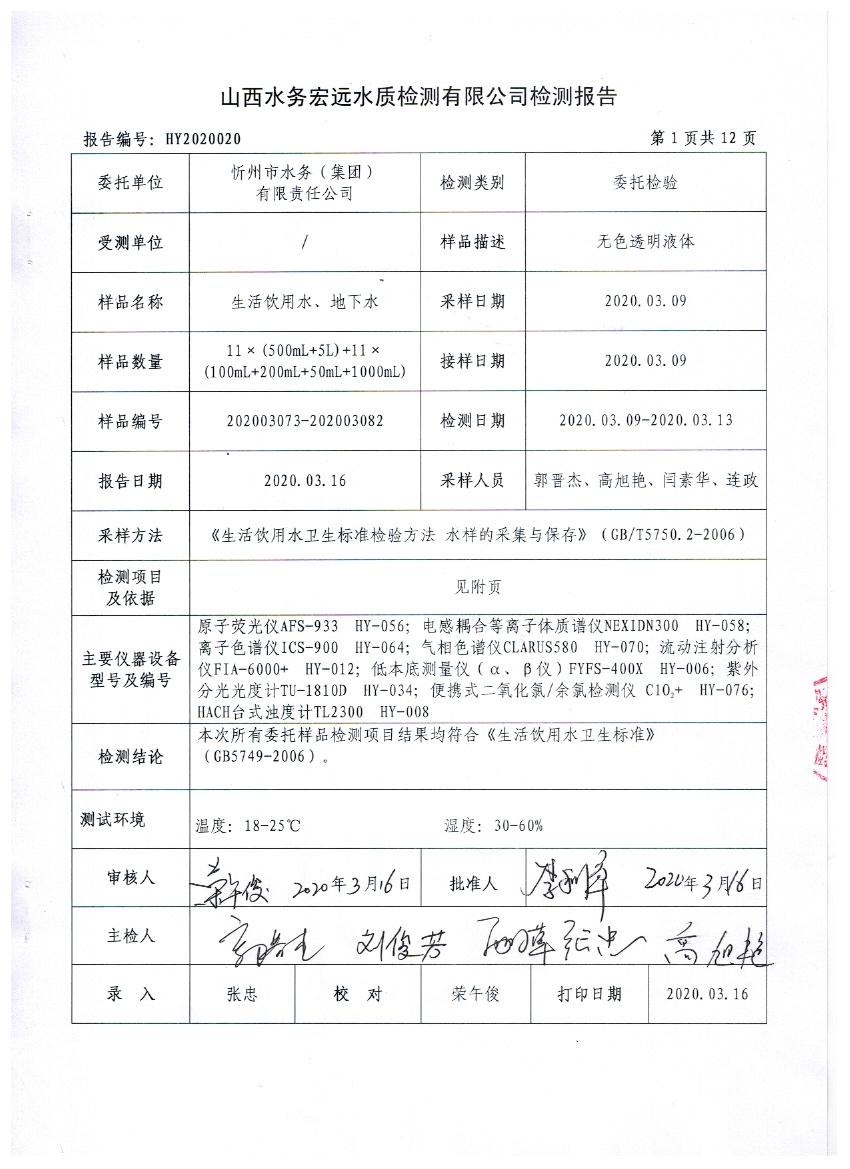 山西水务宏远水质检测有限公司检测报告
报告编号: HY2020020 第 1 页共 12 页
委托单位 忻州市水务（集团）有限责任公司 检测类别 委托检验
受测单位 / 样品描述 无色透明液体
样品名称 生活饮用水、地下水 采样日期 2020.03.09
样品数量 11×(500mL+5L)+11×(100mL+200mL+50mL+1000mL) 接样日期 2020.03.09
样品编号 202003073-202003082 检测日期 2020.03.09-2020.03.13
报告日期 2020.03.16 采样人员 郭晋杰、高旭艳、闫素华、连政
采样方法 《生活饮用水卫生标准检验方法 水样的采集与保存》（GB/T5750.2-2006）
检测项目及依据 见附页
主要仪器设备型号及编号
原子荧光仪AFS-933 HY-056; 电感耦合等离子体质谱仪NEXIDN300 HY-058;
离子色谱仪ICS-900 HY-064; 气相色谱仪CLARUS580 HY-070; 流动注射分析
仪FIA-6000+ HY-012; 低本底测量仪（α、β仪）FYFS-400X HY-006; 紫外
分光光度计TU-1810D HY-034; 便携式二氧化氯/余氯检测仪 ClO₂+ HY-076;
HACH台式浊度计TL2300 HY-008
检测结论 本次所有委托样品检测项目结果均符合《生活饮用水卫生标准》
（GB5749-2006）。
测试环境 温度: 18-25℃ 湿度: 30-60%
审核人 荣午俊 2020年3月16日 批准人 2020年3月16日
主检人 刘俊芳 张忠 高旭艳
录 入 张忠 校 对 荣午俊 打印日期 2020.03.16